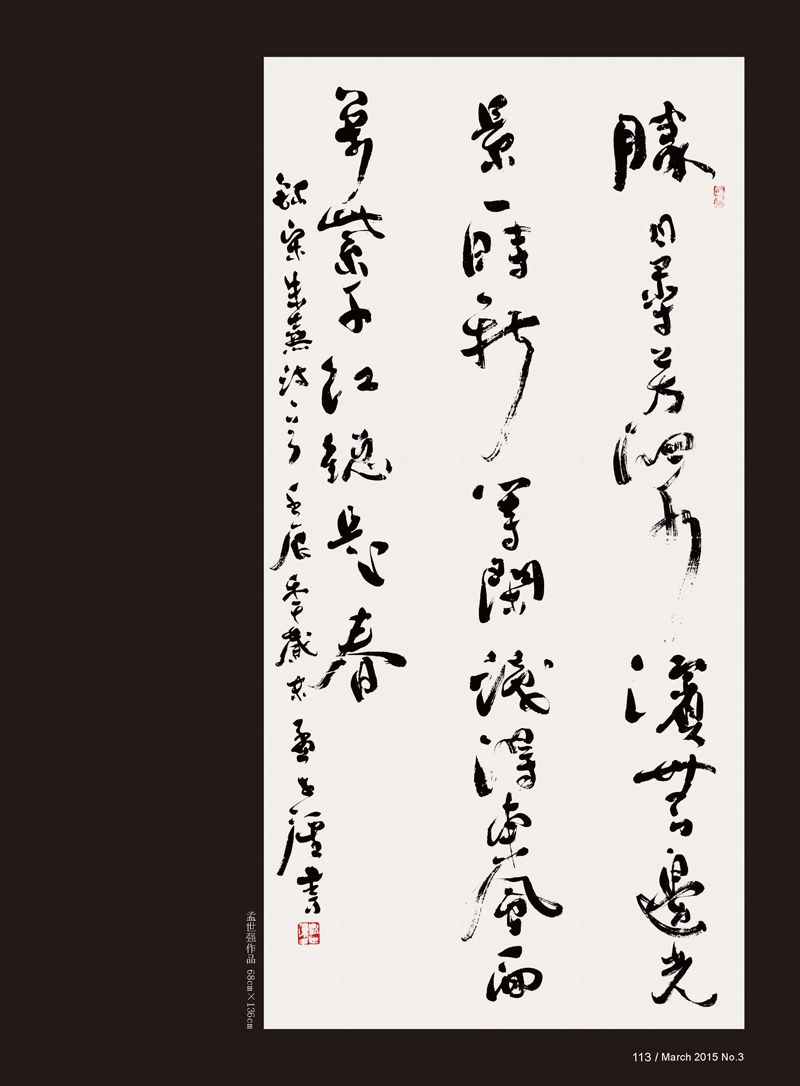 勝日尋芳泗水濱無邊光
景一時新等閑識得東風面
萬紫千紅總是春
錄宋朱熹詩一首壬辰年歲末孟世強書
孟世强作品 68cm×136cm
113 / March 2015 No.3